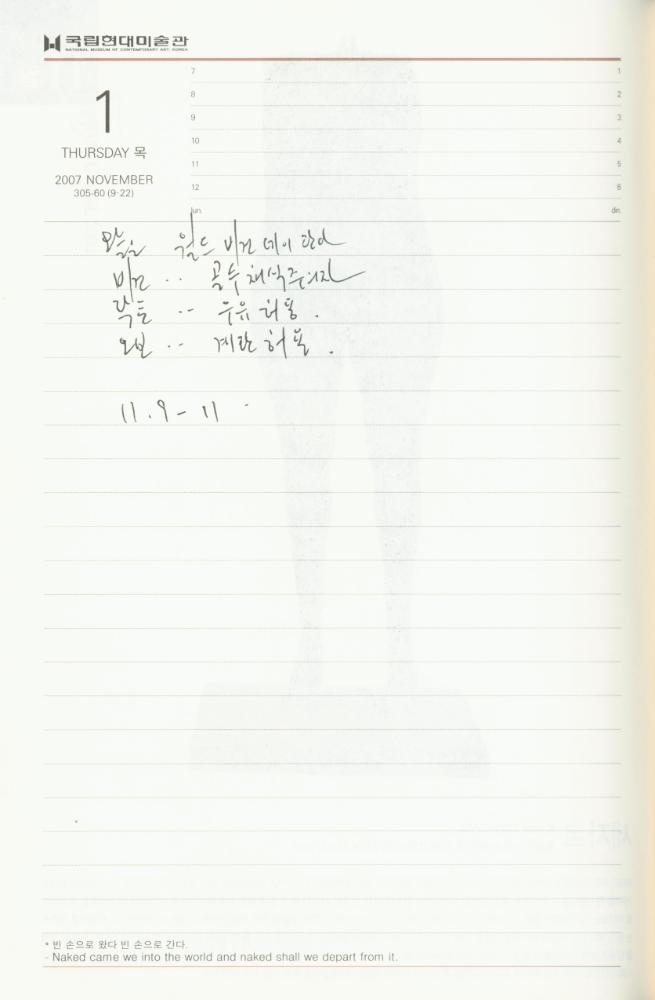 국립현대미술관
NATIONAL MUSEUM OF CONTEMPORARY ART, KOREA
1
THURSDAY 목
2007 NOVEMBER
305-60 (9·22)
7 1
8 2
9 3
10 4
11 5
12 6
lun. din.
오늘은 월드 비건 데이란다
비건 ‥ 골수채식주의자
락토 ‥ 우유허용.
오보 ‥ 계란허용.
11.9-11
* 빈 손으로 왔다 빈 손으로 간다.
- Naked came we into the world and naked shall we depart from it.